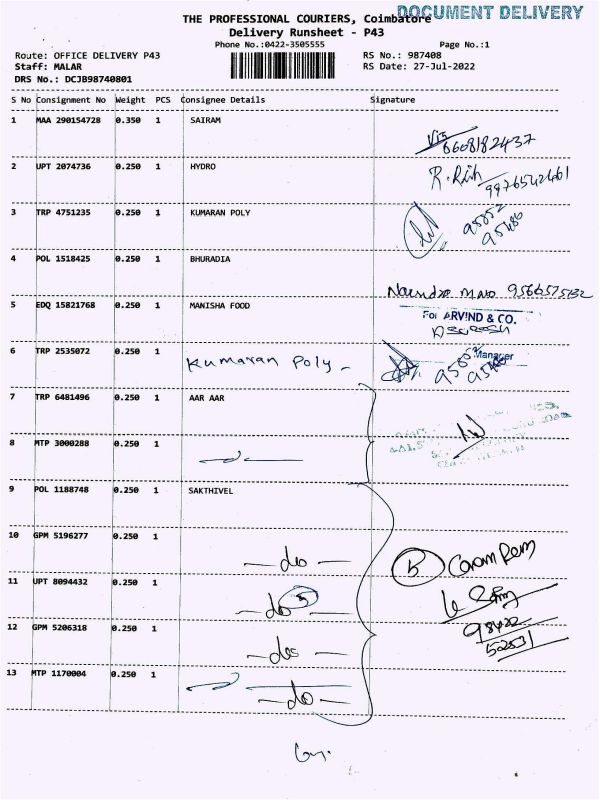 DOCUMENT DELIVERY
THE PROFESSIONAL COURIERS, Coimbatore
Delivery Runsheet - P43
Phone No.:0422-3505555 Page No.:1
Route: OFFICE DELIVERY P43 RS No.: 987408
Staff: MALAR RS Date: 27-Jul-2022
DRS No.: DCJB98740801
S No Consignment No Weight PCS Consignee Details Signature
1 MAA 290154728 0.350 1 SAIRAM
6608182437
2 UPT 2074736 0.250 1 HYDRO
3 TRP 4751235 0.250 1 KUMARAN POLY
95852
95486
4 POL 1518425 0.250 1 BHURADIA
5 EDQ 15821768 0.250 1 MANISHA FOOD
For ARVIND & CO.
6 TRP 2535072 0.250 1 Kumaran Poly
Manager
7 TRP 6481496 0.250 1 AAR AAR
8 MTP 3000288 0.250 1
9 POL 1188748 0.250 1 SAKTHIVEL
10 GPM 5196277 0.250 1 - do -
5
11 UPT 8094432 0.250 1 - do -
12 GPM 5206318 0.250 1 - do -
98422
52531
13 MTP 1170004 0.250 1 - do -